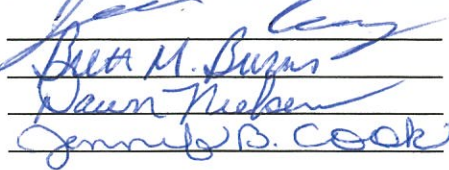 Brett M. Burns
Dawn Nielsen
Jennifer B. Cook